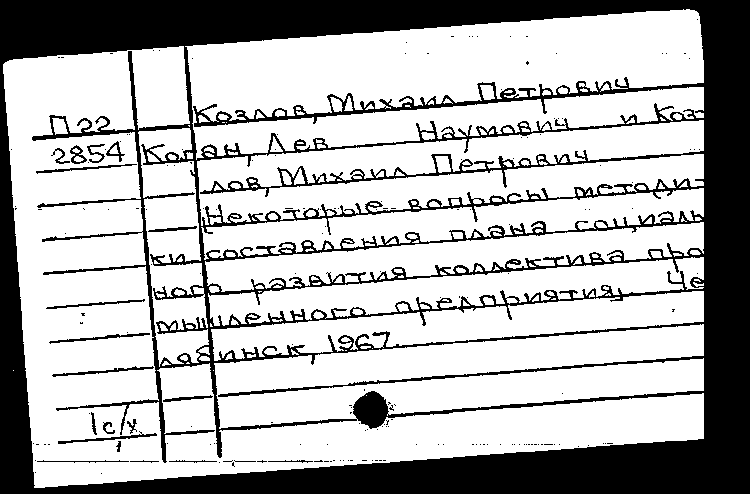 Козлов, Михаил Петрович
П22
2854 Коган, Лев Наумович и Коз-
лов, Михаил Петрович
Некоторые вопросы методи-
ки составления плана социаль
ного развития коллектива про
мышленного предприятия, Че
лябинск, 1967.
1с/х